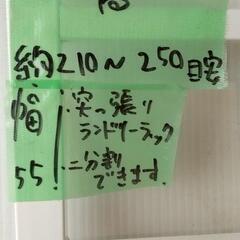 約210～250目安
幅55
突っ張り
ランドリーラック
二分割
できます